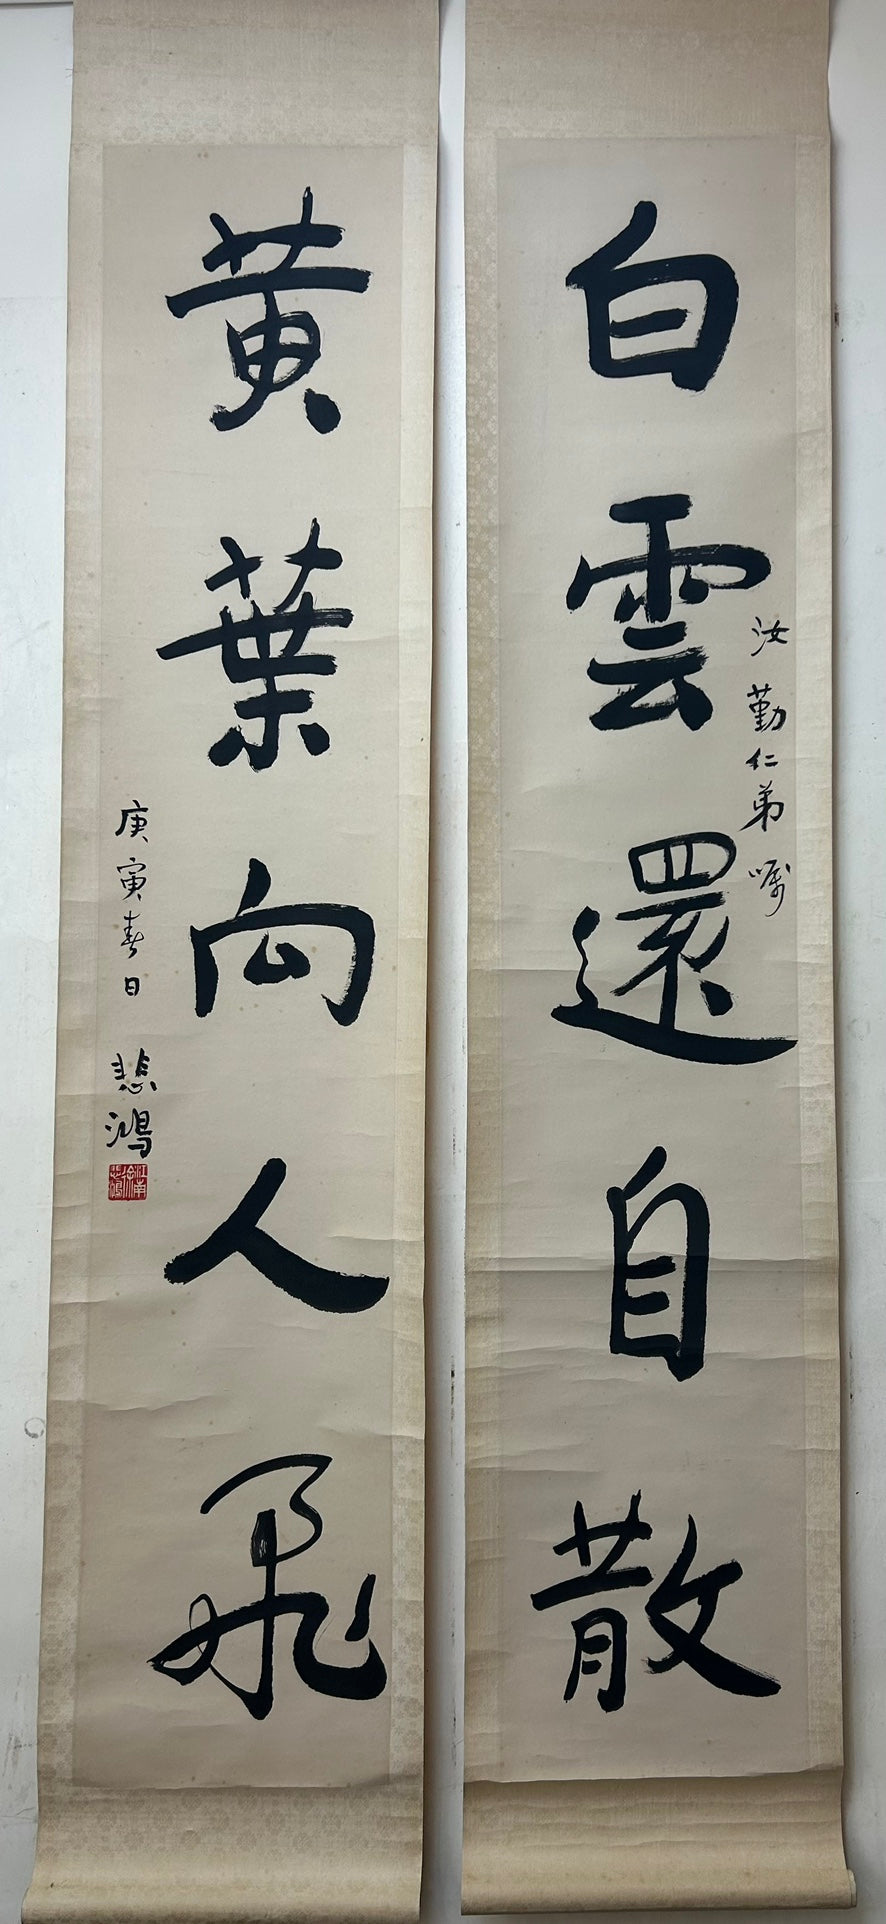 白雲還自散
汝勤仁弟嘱
黄葉向人飛
庚寅春日
悲鴻
江南徐悲鴻